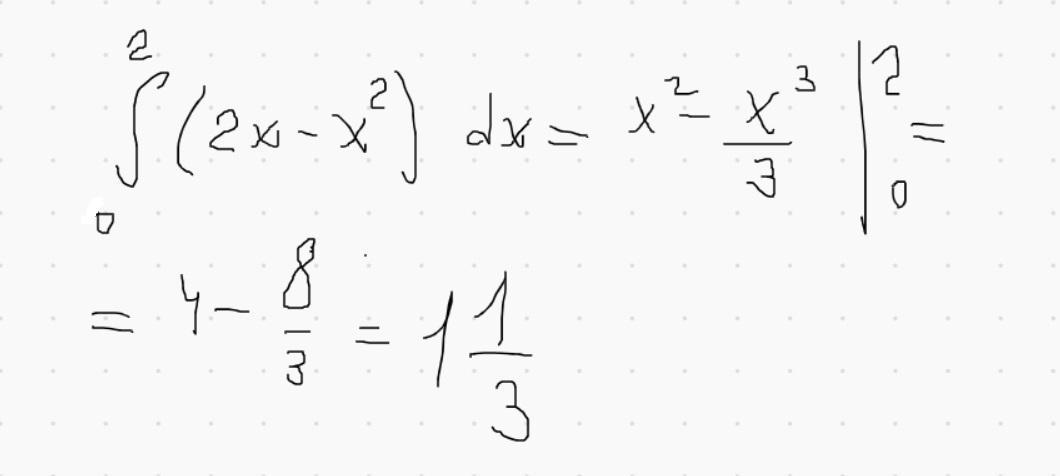 ∫₀² (2x - x²) dx = x² - x³/3 |₀² =
= 4 - 8/3 = 1 1/3